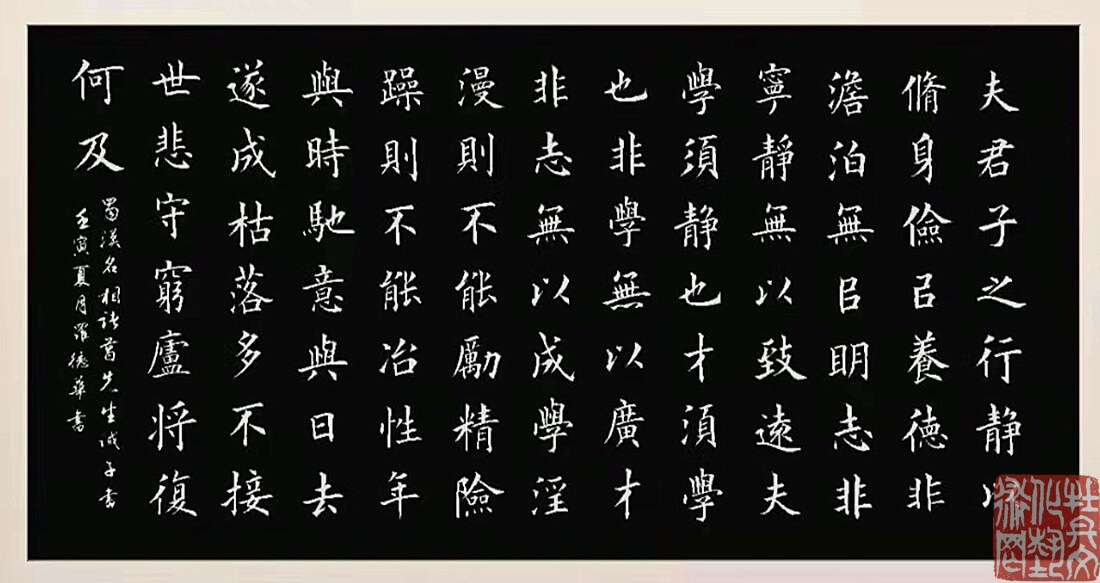 夫君子之行靜以
脩身儉㠯養德非
澹泊無㠯眀志非
寧靜無以致遠夫
學須靜也才須學
也非學無以廣才
非志無以成學淫
漫則不能勵精險
躁則不能冶性年
與時馳意與日去
遂成枯落多不接
世悲守窮廬將復
何及
蜀漢名相諸葛先生誡子書
壬寅夏月羅德華書
牡丹文
化藝
術网